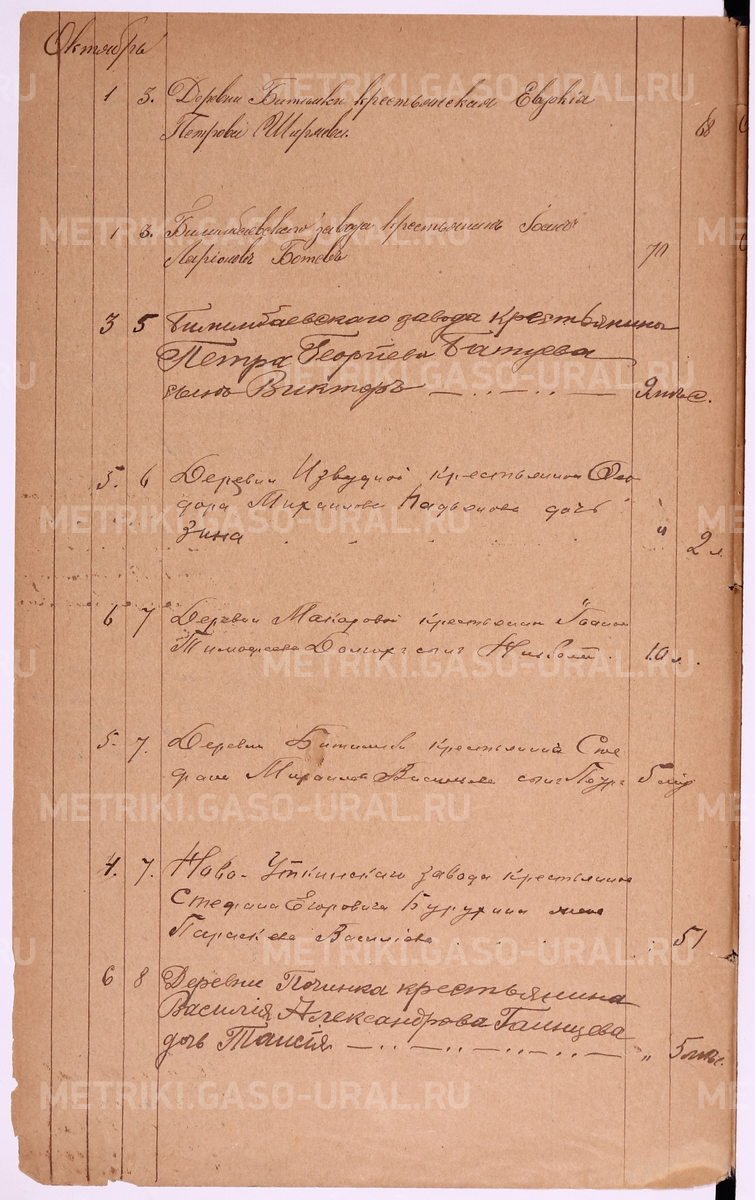 Октябрь
1 3. Деревни Битимки крестьянская Евдокія
Петрова Ширяева. 68
1 3. Билимбаевскаго завода крестьянинъ Іоаннъ
Ларіоновъ Ботевъ 70
3 5 Билимбаевскаго завода крестьянина
Петра Георгіева
сынъ Викторъ 9 мѣс.
5. 6 Деревни Извѣздной крестьянина Ѳео
дора Михаилова дочь
Зина " 2 л.
6 7 Деревни Макаровой крестьянина Іоанна
Тимоѳеева сынъ 10 л.
5. 7. Деревни Битимки крестьянина Сте
фана Михаилова Васильева сынъ Петръ
4. 7. Ново-Уткинскаго завода крестьянина
Стефана Егоровича жена
Параскева Василіева 51
6 8 Деревни Починка крестьянина
Василія Александрова Галицева
дочь Таисія " 5 мѣс.
METRIKI.GASO-URAL.RU